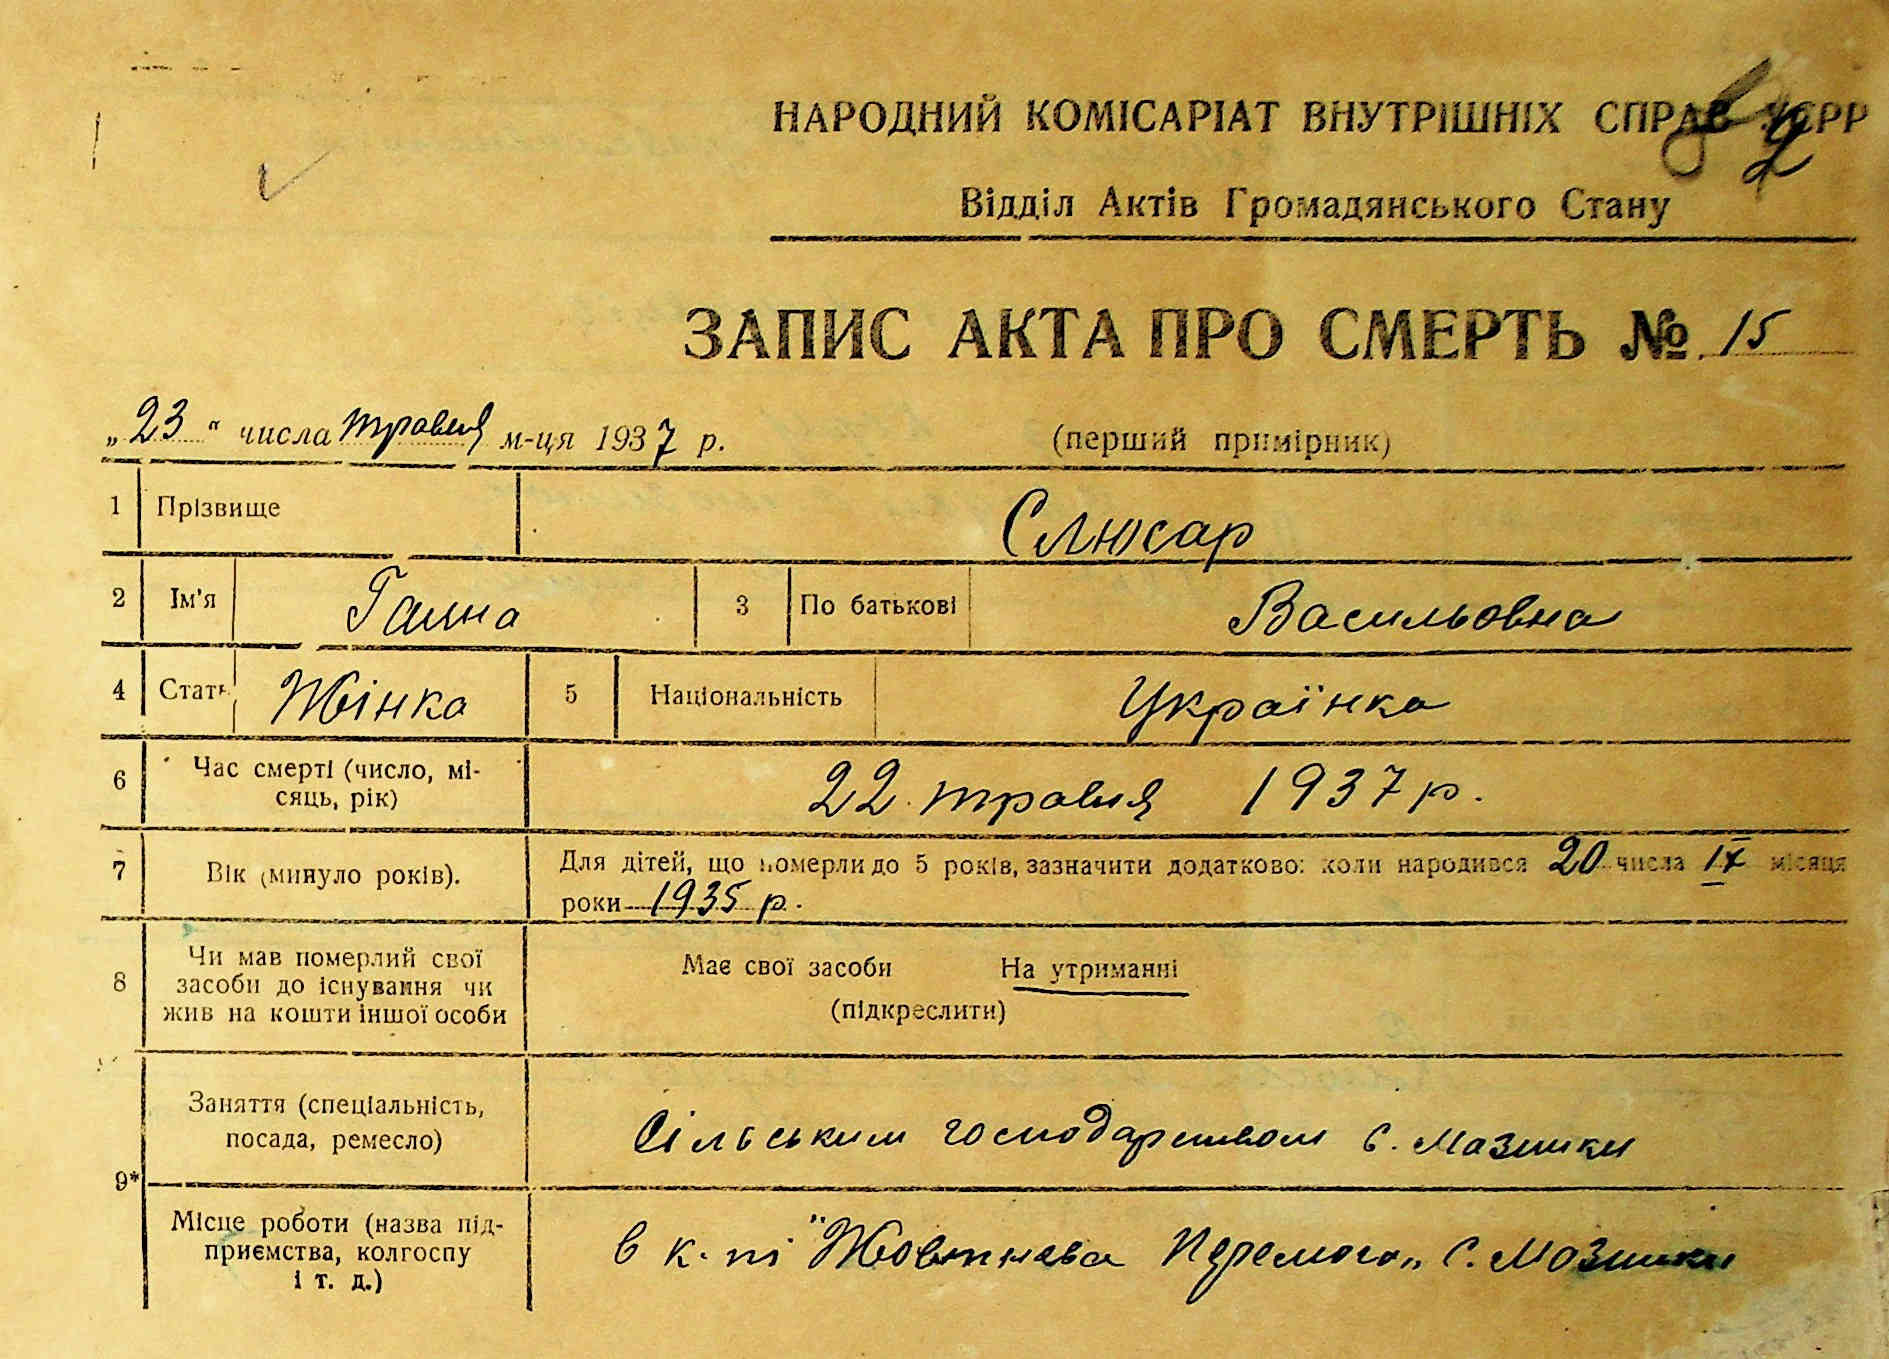 НАРОДНИЙ КОМІСАРІАТ ВНУТРІШНІХ СПРАВ УСРР
Відділ Актів Громадянського Стану
ЗАПИС АКТА ПРО СМЕРТЬ № 15
„23“ числа травня м-ця 1937 р. (перший примірник)
1 Прізвище Слюсар
2 Ім'я Ганна 3 По батькові Васильовна
4 Стать Жінка 5 Національність Українка
6 Час смерті (число, мі-
сяць, рік) 22 травня 1937 р.
7 Вік (минуло років). Для дітей, що померли до 5 років, зазначити додатково: коли народився 20 числа IX місяця
роки 1935 р.
8 Чи мав померлий свої
засоби до існування чи
жив на кошти іншої особи
Має свої засоби На утриманні
(підкреслити)
9* Заняття (спеціальність,
посада, ремесло)
Сільським господарством с. Мазники
Місце роботи (назва під-
приємства, колгоспу
і т. д.)
в к-пі "Жовтнева Перемога„ с. Мазники